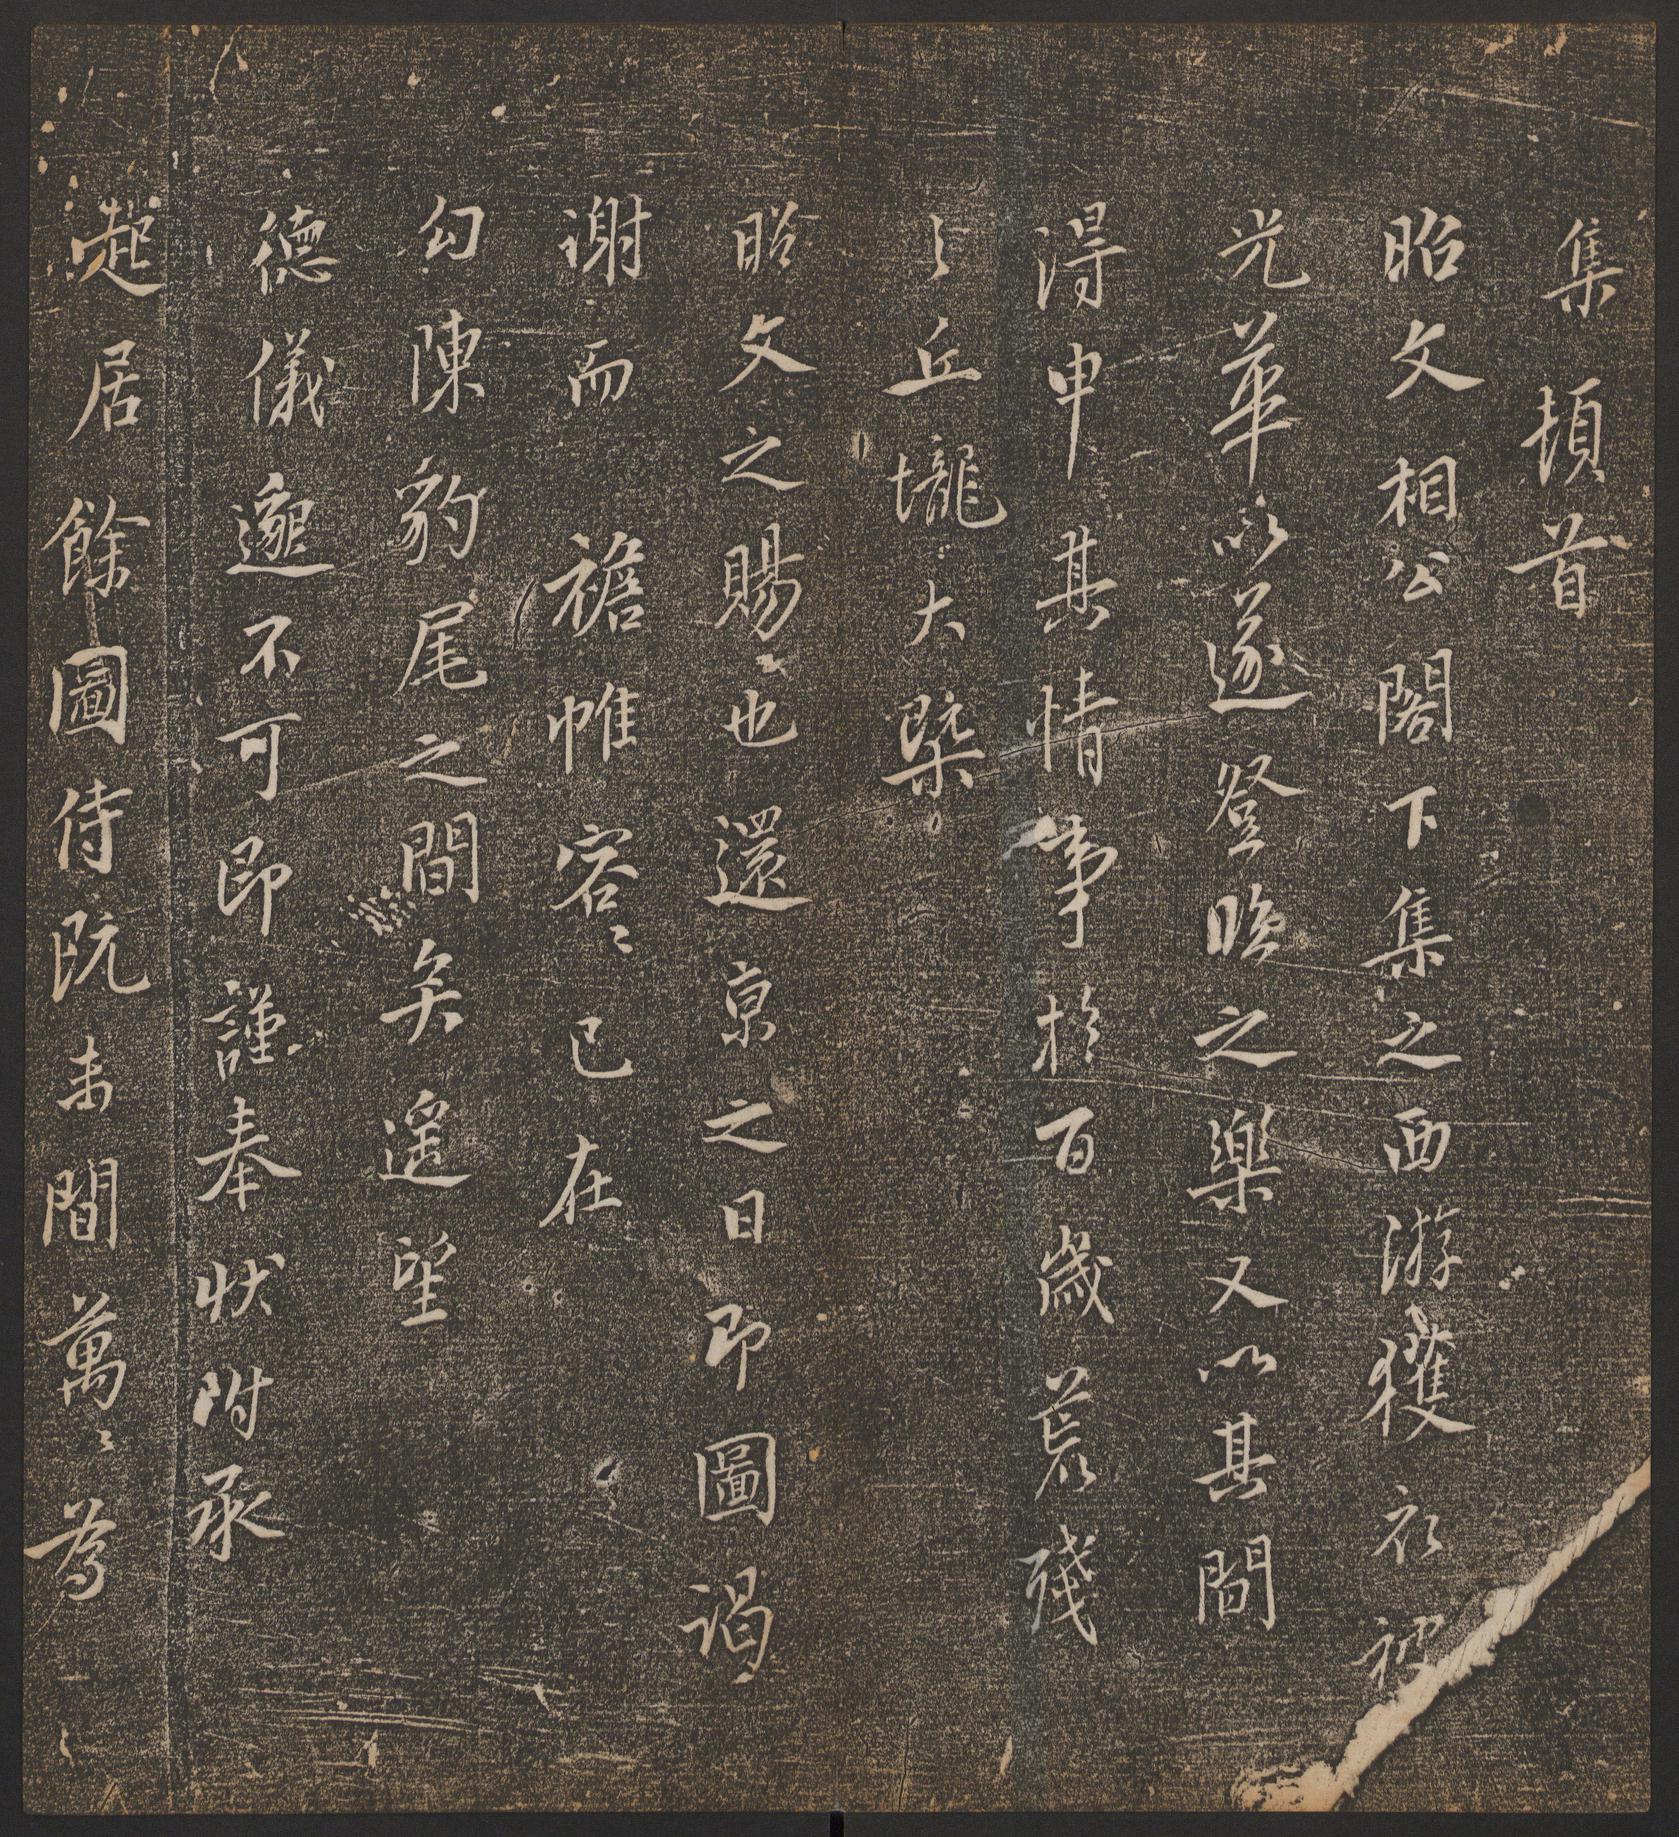 集頓首
昭文相公閣下集之西游獲衣被
光華以遂登臨之樂又以其間
得申其情事於百歲荒殘
之丘壠大槩
昭文之賜也還京之日即圖謁
謝而襜帷容〻已在
勾陳豹尾之間矣遥望
德儀邈不可即謹奉狀附承
起居餘圖侍既未間萬〻為